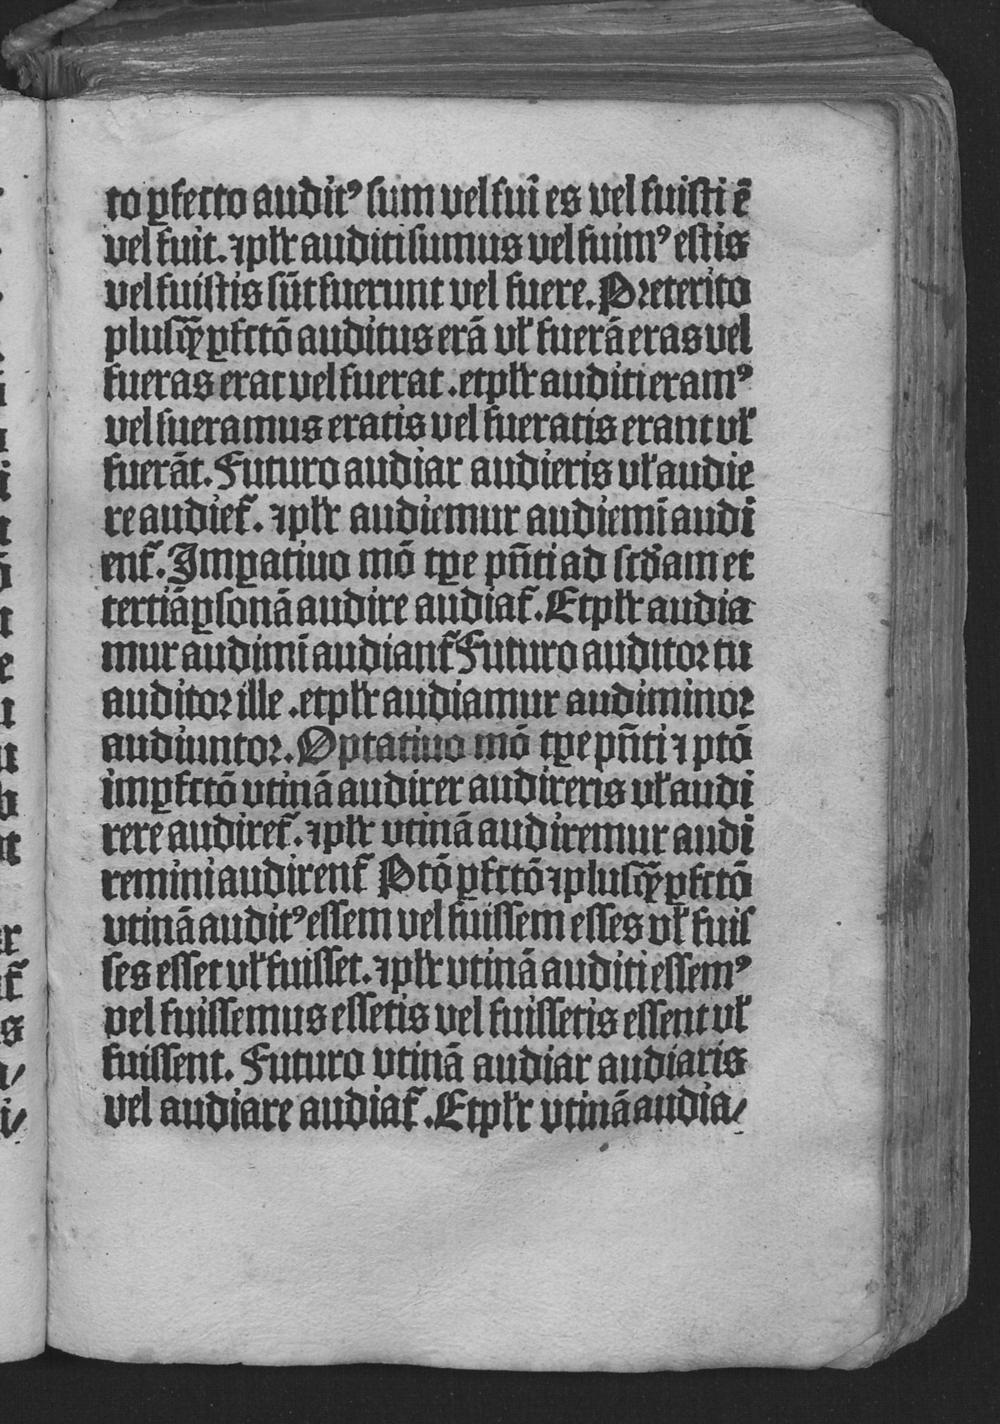 to ꝑfecto auditꝰ sum vel fui es vel fuisti ē
vel fuit. ⁊ plr̄ auditi sumus vel fuimꝰ estis
vel fuistis sūt fuerunt vel fuere. Preterito
plusꝙ̄ ꝑfctō auditus erā vł fuerā eras vel
fueras erat vel fuerat . et plr̄ auditi eramꝰ
vel fueramus eratis vel fueratis erant vł
fuerāt. Futuro audiar audieris vł audie
re audiet᷑. ⁊ plr̄ audiemur audiemī audi
ent᷑. Imꝑatiuo mō tꝑe pn̄ti ad scḏam et
tertiā ꝑsonā audire audiat᷑. Et plr̄ audia
mur audimī audiant᷑ Futuro auditor tu
auditor ille . et plr̄ audiamur audiminor
audiuntor. Optatiuo mō tꝑe pn̄ti ⁊ ptō
imꝑfctō vtinā audirer audireris vł audi
rere audiret᷑. ⁊ plr̄ vtinā audiremur audi
remini audirent᷑ Ptō ꝑfctō ⁊ plusꝙ̄ ꝑfctō
vtinā auditꝰ essem vel fuissem esses vł fuis
ses esset vł fuisset. ⁊ plr̄ vtinā auditi essemꝰ
vel fuissemus essetis vel fuissetis essent vł
fuissent. Futuro vtinā audiar audiaris
vel audiare audiat᷑ . Et plr̄ vtinā audia/